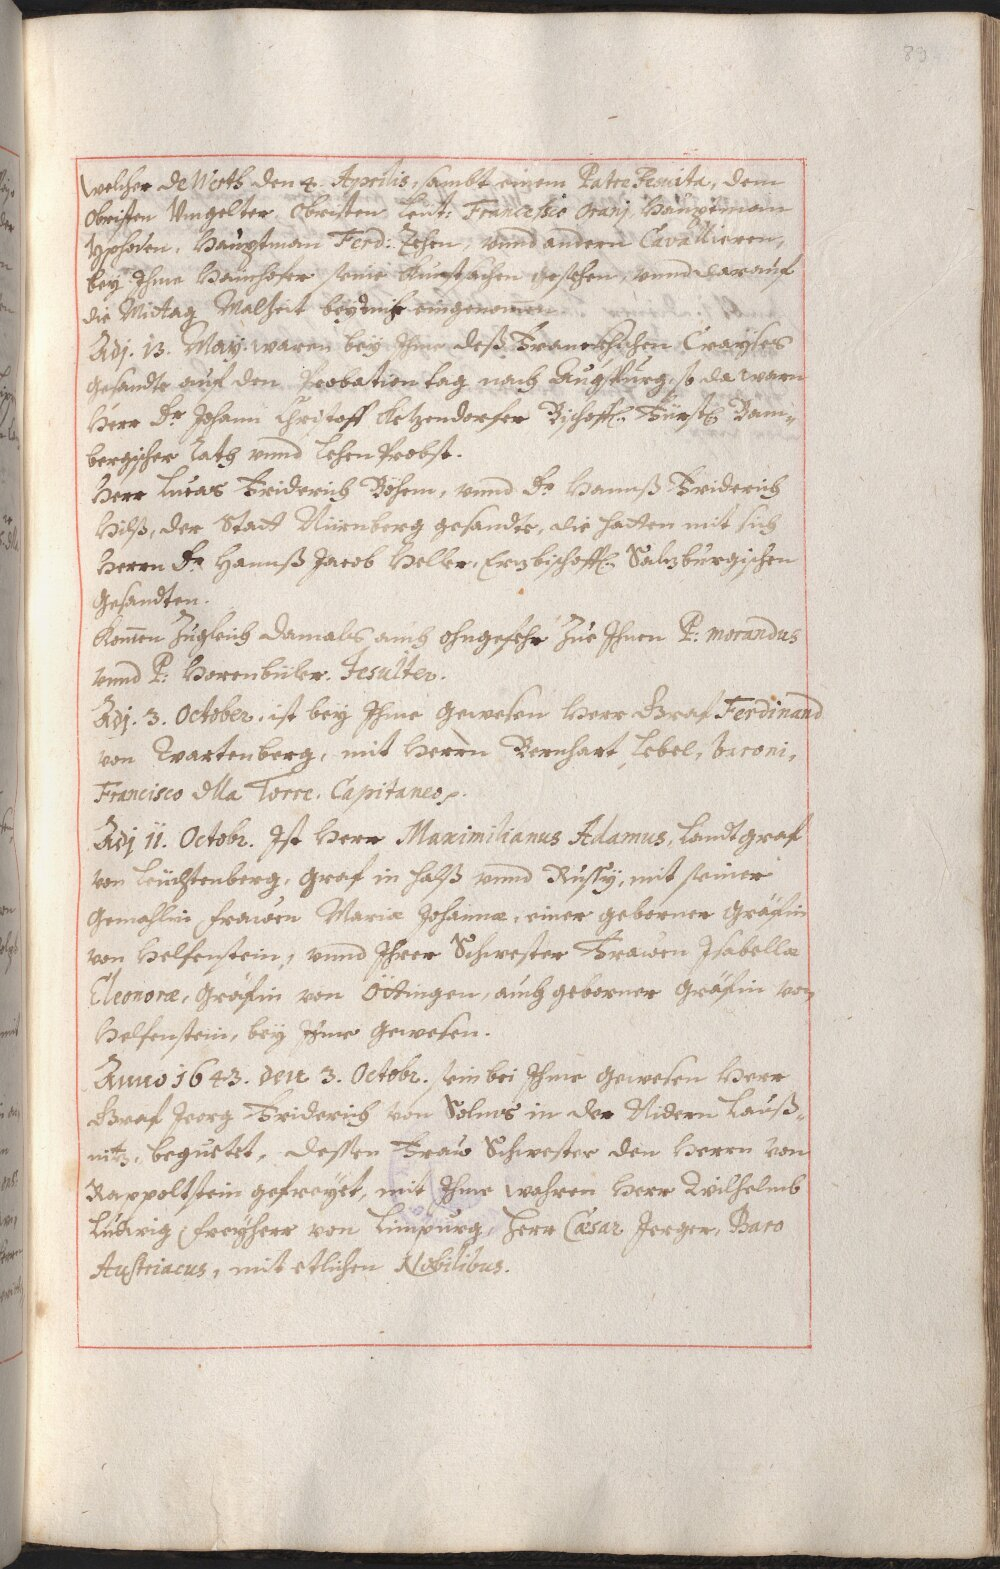 89
welcher de Werth den 4. Aprilis, sambt einem Patre Jesuita, dem
Obristen Umgelter, Obristen Leut: Francesco Orarj, Hauptman
Yphofen, Hauptman Ferd: Zehen, vnnd andern Cavallieren,
bey Ihme Hainhofer seine Kunstsachen gesehen, vnnd darauf
die Mittag Malheit bey Ihme eingenom̄en.
Adj. 13. Maÿ waren bey Ihme deß Franckhischen Crayses
gesandte auf den Probation tag nach Augspurg, so da warn
Herr Dr Johann Christoff Metzendorfer Bischoffl. Fürstl. Bam-
bergischer Rath vnnd Lehen Probst.
Herr Lucas Friderich Böhem, vnnd Dr Hannß Friderich
Hilß, der Statt Nürnberg gesandte, die hatten mit sich
Herrn Dr Hannß Jacob Heller, Erzbischoffl. Salzburgischen
Gesandten.
Kom̄en Zugleich damals auch ohngefehr Zue Ihnen P: Morandus
vnnd P: Horenbüler. Jesuiter.
Adj. 3. October. ist bey Ihme gewesen Herr Graf Ferdinand
von Wartenberg, mit Herrn Bernhart Lebel, Baroni,
Francisco dlla Torre. Capitaneo.
Adj 11. Octobr. Ist Herr Maximilianus Adamus, Landtgraf
von Leüchtenberg, Graf in Halß vnnd Russÿ, mit seiner
Gemahlin Frawen Mariæ Johannæ, einer geborner Gräfin
von Helfenstein, vnnd Ihrer Schwester Frawen Isabellæ
Eleonoræ, Gräfin von Öttingen, auch geborner Gräfin von
Helfenstein, bey Ihme gewesen.
Anno 1643. den 3. Octobr. sein bei Ihme gewesen Herr
Graf Jeorg Friderich von Solms in der Nidern Lauß-
nitz, beguetet, dessen Fraw Schwester den Herrn von
Rappoltstein gefreyet, mit Ihme wahren Herr Wilhelmb
Ludwig Freyherr von Limpurg, Herr Cæsar Jerger, Baro
Austriacus, mit etlichen Nobilibus.